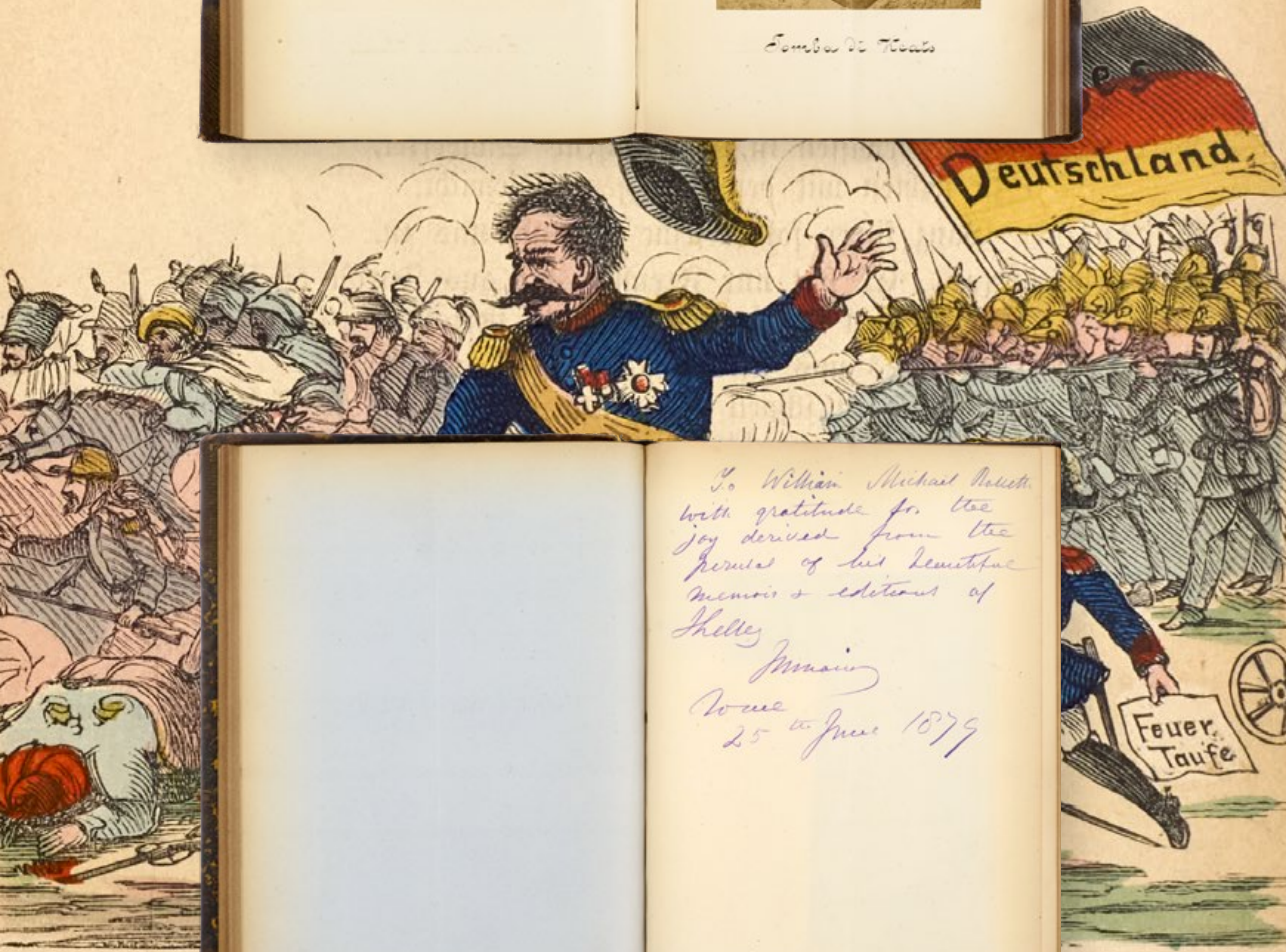 Tomba di Keats
es
Deutschland
To William Michael Rossetti
with gratitude for the
joy derived from the
perusal of his beautiful
memoir & editions of
Shelley
Rome
25th June 1879
Feuer
Taufe